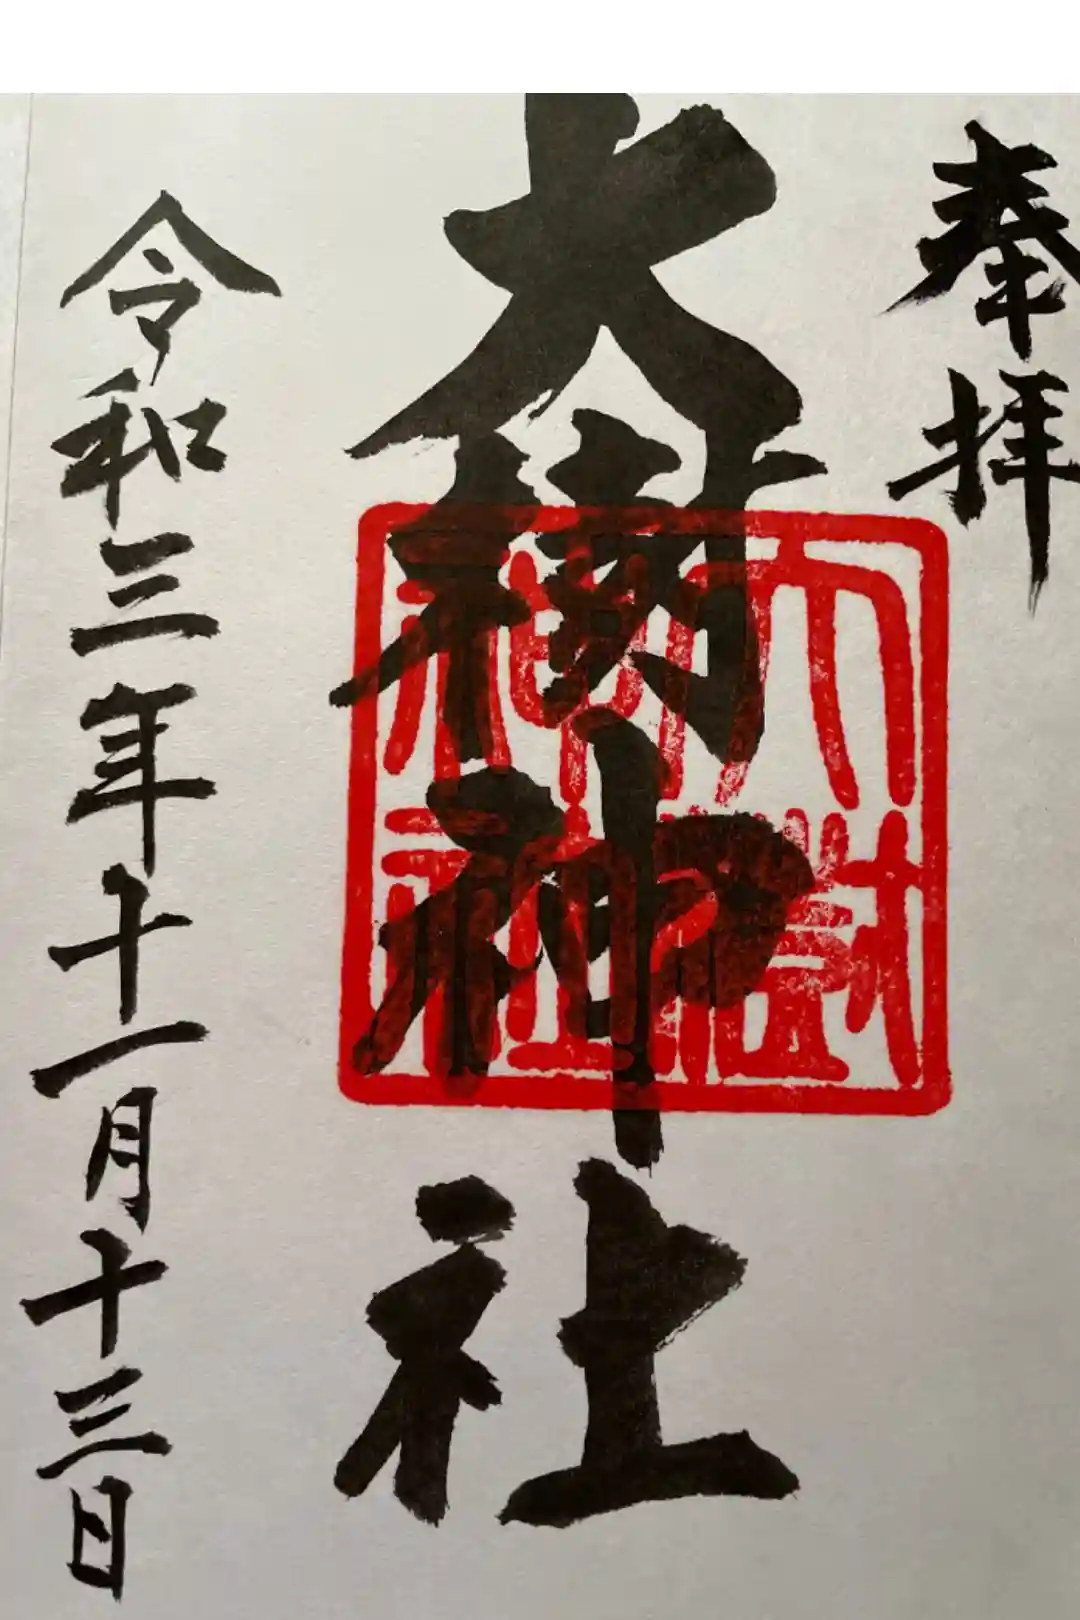 奉拝
大樹神社
大樹
神社
令和三年十一月十三日